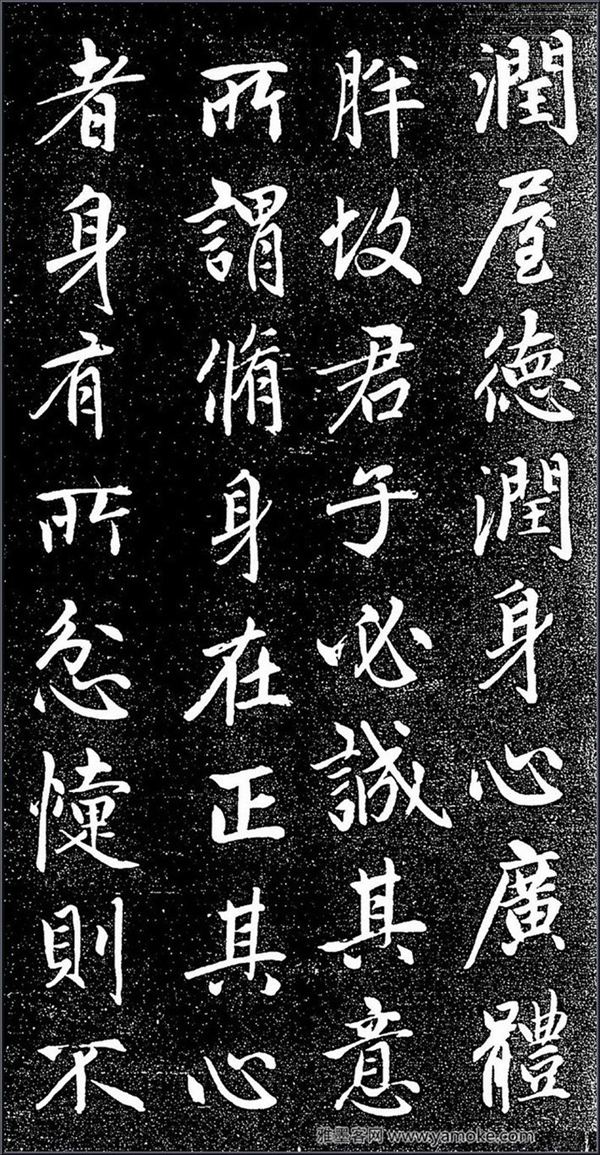 潤屋德潤身心廣體
胖故君子必誠其意
所謂脩身在正其心
者身有所忿懥則不
雅墨客网 www.yamoke.com